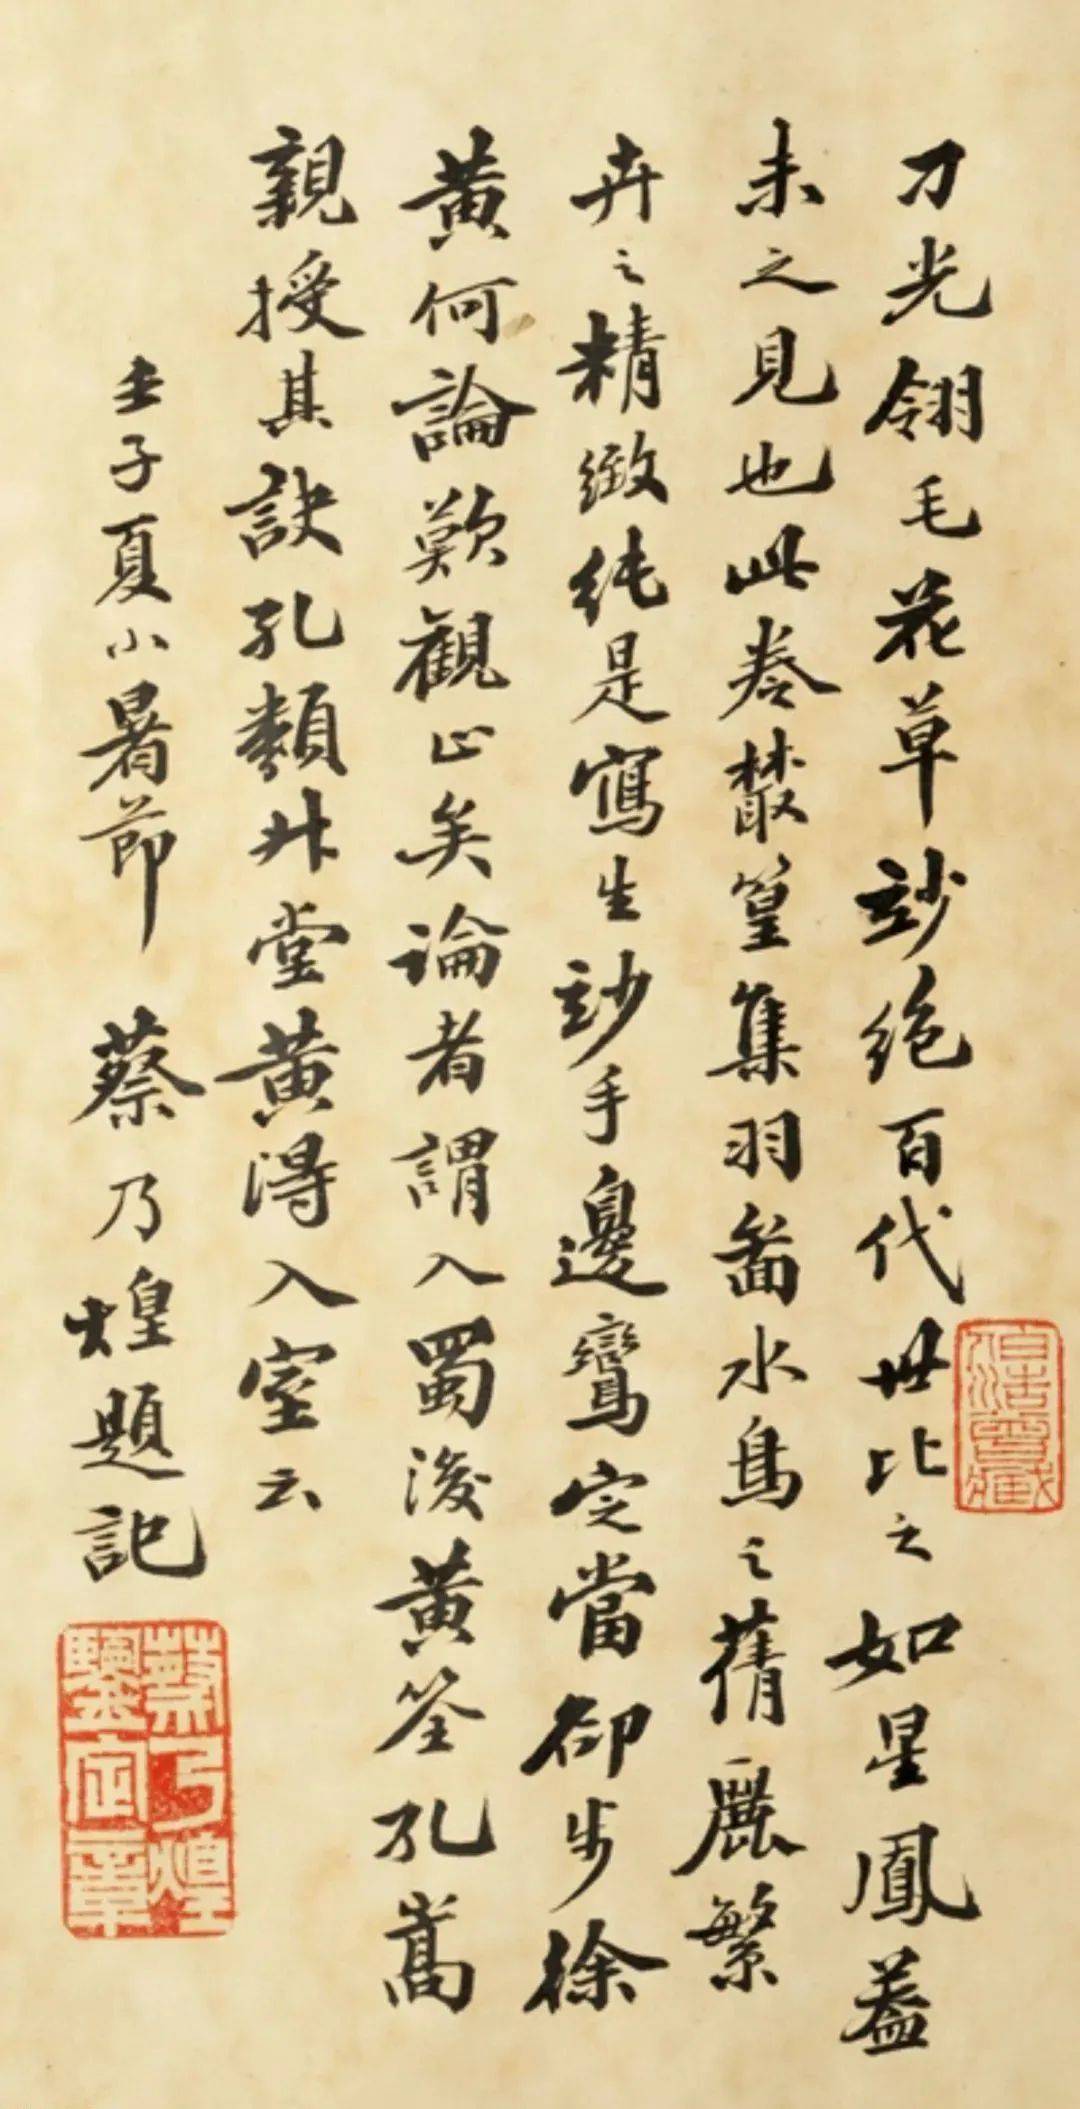 刀光翎毛花草玅絕百代世比之如星鳳葢
未之見也此卷叢篁集羽啚水鳥之蒨麗繁
卉之精緻純是寫生玅手邊鸞定當卻步徐
黃何論歎觀止矣論者謂入蜀後黃筌孔嵩
親授其訣孔類升堂黃得入室云
壬子夏小暑節 蔡乃煌題記
蔡乃煌
鑒定章